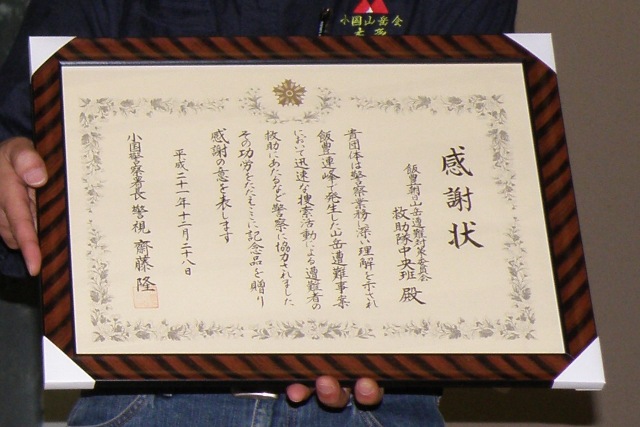 小国山岳会
感謝状
飯豊朝日山岳遭難対策委員会
救助隊中央班 殿
貴団体は警察業務に深い理解を示され
飯豊連峰で発生した山岳遭難事案
において迅速な捜索活動による遭難者の
救助にあたるなど警察に協力されました
その功労をたたえここに記念品を贈り
感謝の意を表します
平成二十一年十二月二十八日
小国警察署長 警視 齋藤 隆